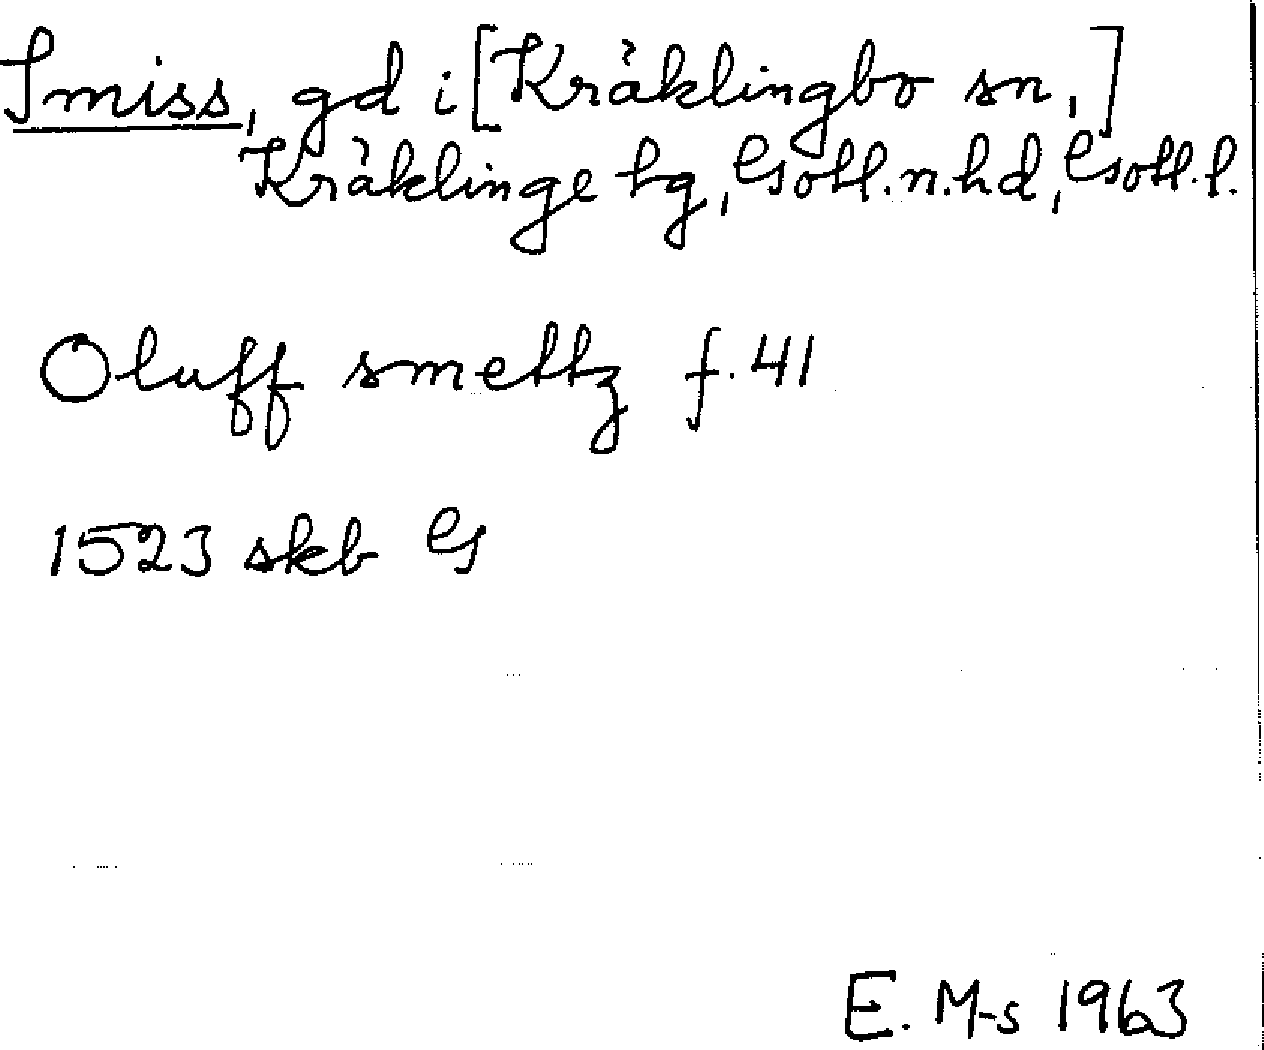 Smiss, gd i [Kräklingbo sn,]
Kräklinge tg, Gotl.n.hd, Gotl.l.
Oluff smettz f. 41
1523 skb G
E. M-s 1963